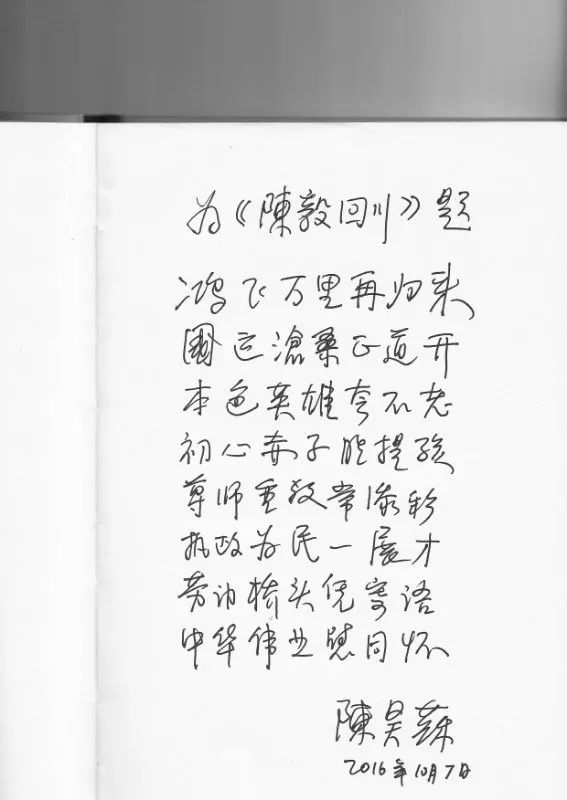 为《陳毅回川》题
鸿飞万里再归来
國运滄桑正道开
本色英雄夸不老
初心赤子胜提孩
尊师重教常添彩
执政为民一展才
劳动桥头凭寄语
中华伟业慰同怀
陳昊蘇
2016年10月7日